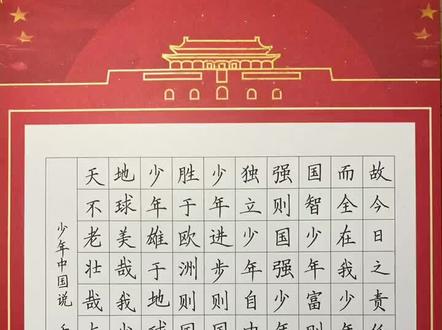 故今日之责任
而全在我少年
国智少年富
强则国强少
独立少年自由
少年进步则国
胜于欧洲则国
少年雄于地球
地球美哉我少
天不老壮哉
少年中国说